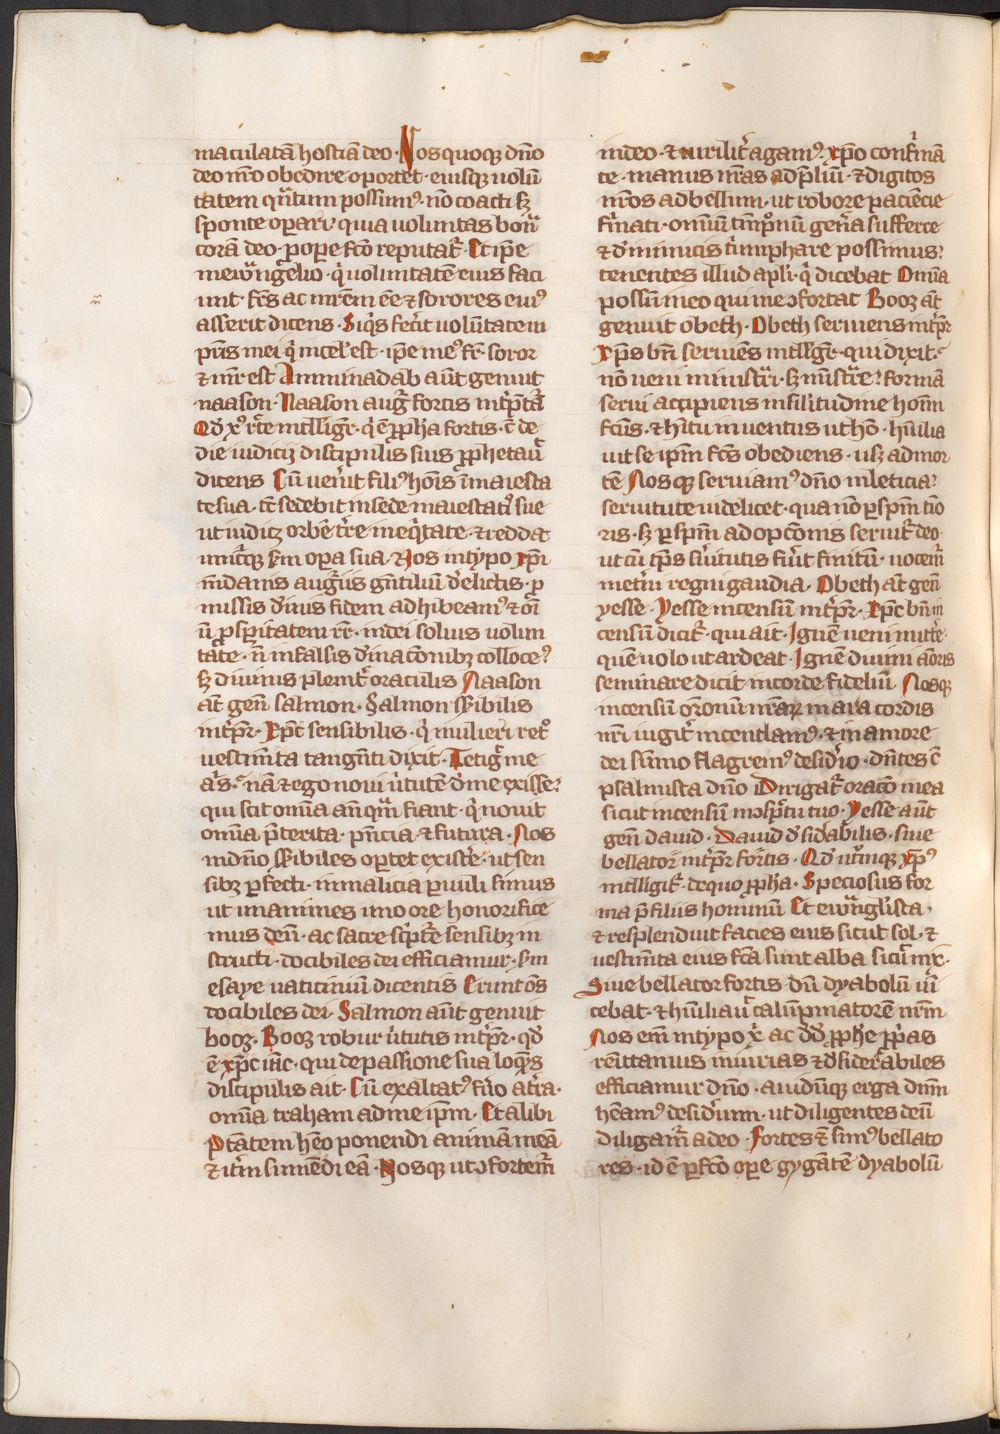 maculatā hostiā deo · Nos quoq; dn̄o
deo nr̄o obedire oportet · eiusq; uolū
tatem qͣntum possumꝰ · nō coacti sꝫ
sponte oꝑari · quia uoluntas bonͣ
corā deo · ꝓ oꝑe fc̄o reputat᷑ · Et ip̄e
in ewͣngelio · qͥ uoluntatē eius faci
unt · fr̄s ac mr̄em ēe ⁊ sorores eiuꝰ
asserit dicens · Siqͥs fec̄it uolūtatem
pr̄is mei qͥ in cel̓ est · ip̄e meꝰ fr̄ · soror
⁊ mr̄ est Amminadab aūt genuit
naason · Naason augͬ fortis int̓p̄tat᷑
Qd̄ xꝰ rc̄te intelligr᷑ · qͥ ē ꝓpha fortis ·
die iudicij discipulis suis ꝓphetauͥ
dicens Cū uen̓it filiꝰ hōis ī maiesta
te sua · tc̄ sedebit in sede maiestatꝭ sue
ut iudicꝫ orbē tr̄re in eqͥtate · ⁊ reddat
unicͥq; scd̄m oꝑa sua · ⁊ Nos in typo xp̄i
m̄damis augͥis gn̄tiliū d̓elictis · ꝓ
missis d̓iuis fidem adhibeamꝰ ⁊ oī
ū ꝓspitatem rr̄ · in dei solius uolun
tate · n̄ in falsis d̓inac̄onibꝫ colloceꝰ
sꝫ diuinis plenit᷑ oraculis Naason
at̄ gen̄ salmon · Salmon sēsibilis
int̓pr᷑ · Xp̄c sensibilis · qͥ mulieri retͦ
uestim̄ta tangn̄ti dixit · Tetigͭ me
aͥs · nā ⁊ ego noui uͥtutē d̓ me exisse
qui scit om̄ia an̄ qͣm fiant · qͥ nouit
om̄ia p̄terita · p̄ncia · ⁊ futura · Nos
in dn̄o sēsibiles oꝑtet existe᷑ · ut sen
sibꝫ ꝑfecti · in malicia ꝑuuli simus
ut unanimes uno ore honorifice
mus deū · ac sacre scͥpt᷑e sensibꝫ in
structi · docibiles dei efficiamur · scd̄m
esaye uaticiniū dicentis Erunt oēs
docibiles dei · Salmon aūt genuit
booz · Booz robur uͥtutis int̓pr᷑ · qd̄
ē xp̄c · qui de passione sua loqͣns
discipulis ait · Cū exaltatꝰ fūo a tr̄a ·
om̄ia traham ad me ip̄m · Et alibi
Ptātem h̄eo ponendi animā meā
⁊ itͬm sumēdi eā · Nosq; ut ꝯfortem᷑
in deo · ⁊ uirilit᷑ agamꝰ · xp̄o confͥmā
te · manus nr̄as ad p̄liū · ⁊ digitos
nr̄os ad bellum · ut robore paciēcie
fͥmati · omniū gen̓a sufferre
⁊ d̓ inimicis tͥumphare possimus
tenentes illud apl̓i · qͥ dicebat Omīa
possū in eo qui me ꝯfortat Booz at̄
genuit obeth · Obeth seruiens int̓pr᷑
Xp̄s bn̄ seruiēs intll̓igr᷑ · qui dixit ·
nō ueni ministͬri · sꝫ mīstͬre formā
serui accipiens in sil̓itudinē hoīm
fc̄us · ⁊ hītu inuentus ut hō · hūilia
uit se ip̄m fc̄s obediens · usq; ad mor
tē Nosq; seruiamꝰ dn̄o in leticia
seruitute uidelicet · qua nō ꝑ spm̄ tīo
ris · sꝫ ꝑ spm̄ adopc̄onis seruit᷑ deo ·
ut cū tp̄s suͥitutis fuͥit finitū · uocem᷑
inet̓ni regni gaudia · Obeth at̄ gen̄
yesse · Yesse incensū int̓pr᷑ · Xp̄c bn̄ in
censū dicit᷑ · qui ait · Ignē ueni mitte᷑ ·
quē uolo ut ardeat · Ignē diuini aōris
seminare dicit in corde fideliū Nosq;
incensū or̄onū nr̄aꝝ in ara cordis
nr̄i iugit᷑ incendamꝰ · ⁊ in amore
dei sūmo flagremꝰ desid̓io · dn̄tes c̄
psalmista dn̄o Dirigat᷑ orac̄o mea
sicut incensū in ꝯspc̄tu tuo · Yesse aūt
gen̄ dauid · Dauid d̓sid̓abilis · siue
bellator int̓pr᷑ fortis · Qd̄ utͥmq; xp̄ꝰ
intlligit᷑ · de quo ꝓpha · Speciosus for
ma p̄ filiis hominū Et ewͣngl̓ista ·
⁊ resplenduit facies eius sicut sol · ⁊
uestim̄ta eius fc̄a sunt alba sicut nix ·
Siue bellator fortis · dū dyabolū uī
cebat · ⁊ hūiliauͥ calūpniatorē nr̄m
Nos em̄ in typo xͥ ac dd̄ ꝓphe ꝓpͥas
remittamus iniurias ⁊ d̓sid̓erabiles
efficiamur dn̄o · auidūq; erga dnm̄
hēamꝰ desid̓ium · ut diligentes deū
diligam᷑ a deo · Fortes ⁊ simꝰ bellato
res · id ē ꝑfc̄o oꝑe gygantē dyabolū